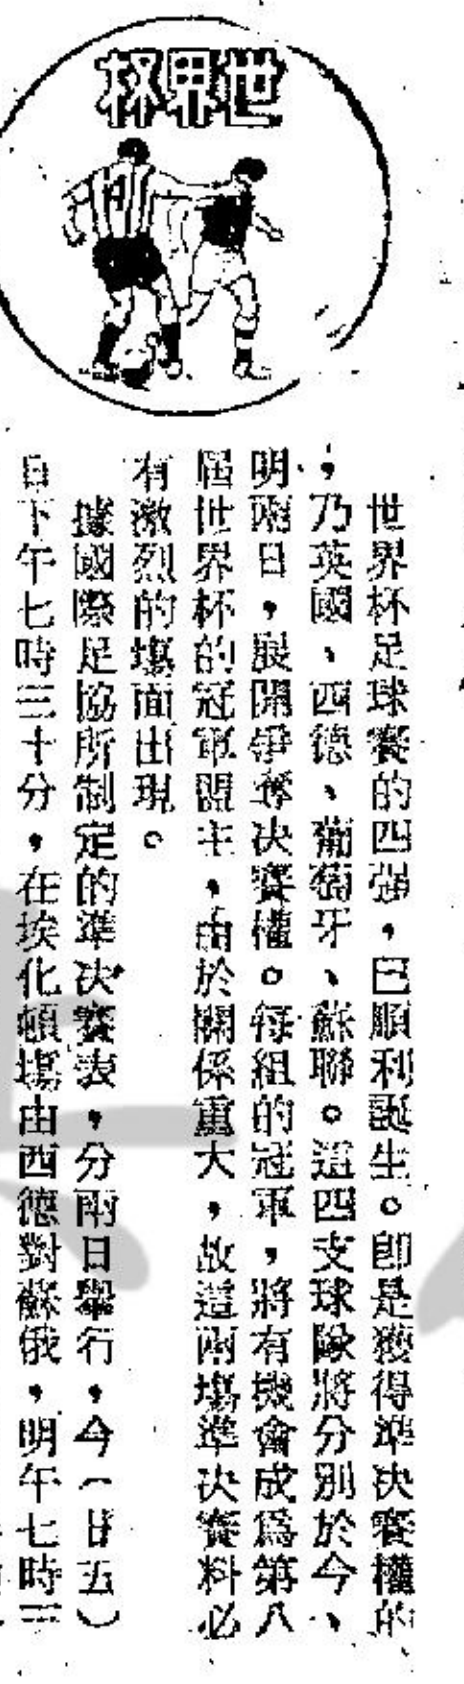 世界杯
世界杯足球賽的四强，已順利誕生。卽是獲得準决賽權的
，乃英國、西德、葡萄牙、蘇聯。這四支球隊將分別於今、
明兩日，展開爭奪决賽權。每組的冠軍，將有機會成爲第八
屆世界杯的冠軍盟主，由於關係重大，故這兩塲準决賽料必
有激烈的塲面出現。
據國際足協所制定的準决賽表，分兩日舉行，今（廿五）
日下午七時三十分，在埃化頓塲由西德對蘇俄，明午七時三